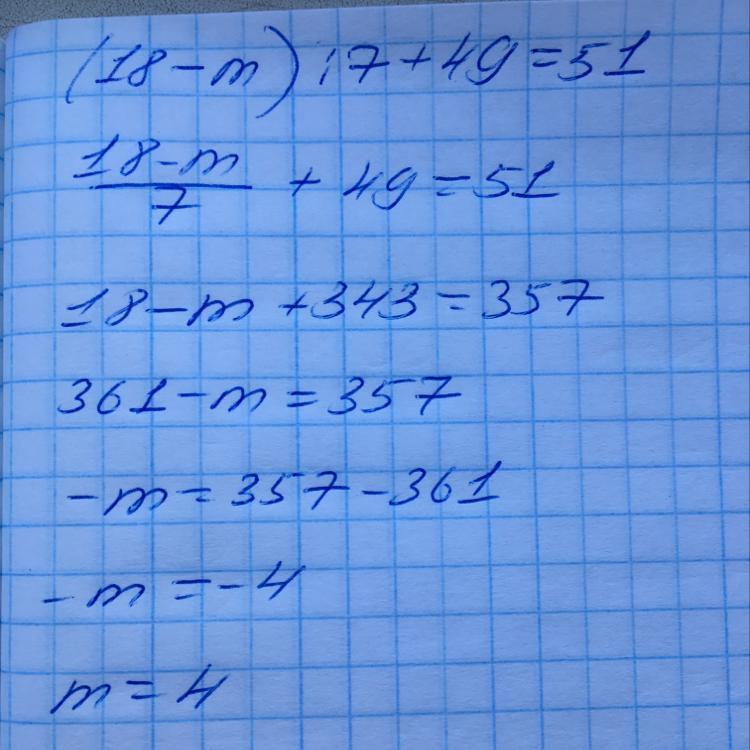 (18-m):7+49=51
18-m
7
+ 49=51
18-m+343=357
361-m=357
-m=357-361
-m=-4
m=4